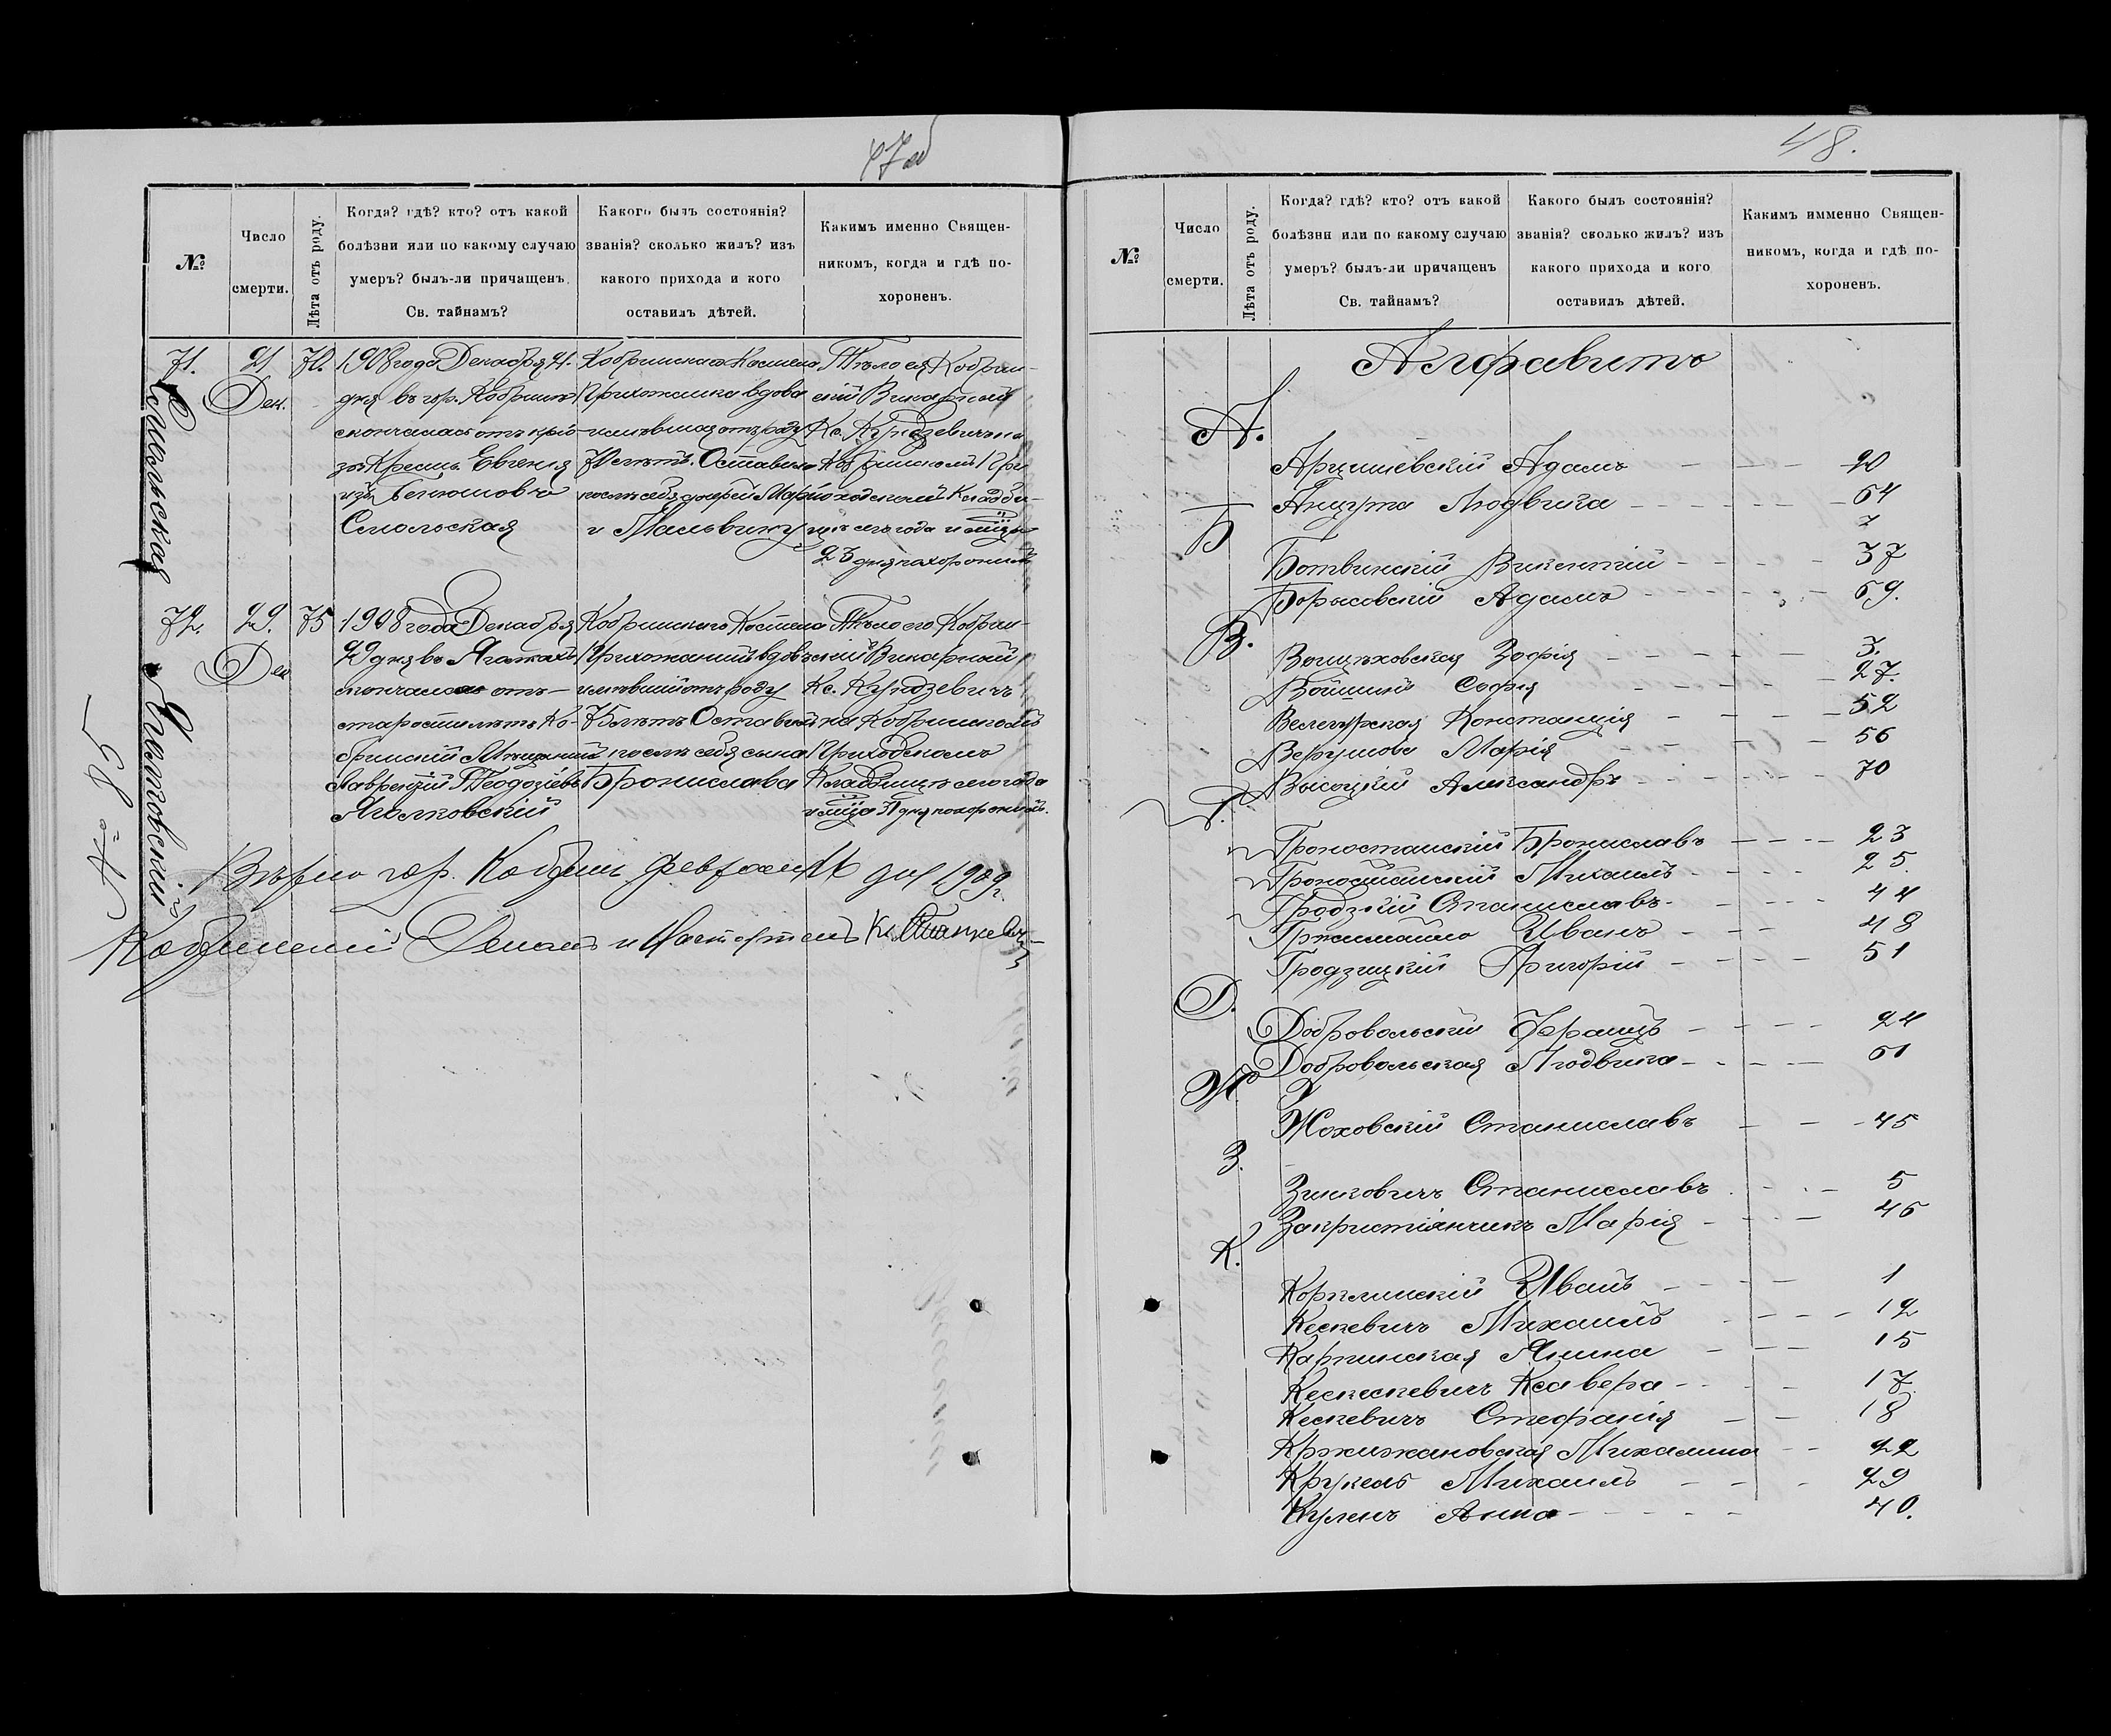 48.
№
Число смерти.
Лѣта отъ роду.
Когда? гдѣ? кто? отъ какой
болѣзни или по какому случаю
умеръ? былъ-ли причащенъ
Св. тайнамъ?
Какого былъ состоянія?
званія? сколько жилъ? изъ
какого прихода и кого
оставилъ дѣтей.
Какимъ именно Священ-
никомъ, когда и гдѣ по-
хороненъ.
71.
21
Дек.
70.
1908 года Декабря 21
дня въ гор. Кобринѣ
скончалась отъ
Евгенія
Смольская
Кобринскаго Костела
Прихожанка вдова
имѣвшая отъ роду
70 лѣтъ. Оставила
послѣ себя дочерей
и Мальвину
Тѣло ея Кобрин-
скій Викарный
Кс. Кундзевичъ на
Кобринскомъ При-
ходскомъ Кладби-
щѣ сего года и мѣсяца
23 дня похоронилъ
Смольская
72.
29.
Дек
75
1908 года Декабря
29 дня въ
скончался отъ
старости лѣтъ Ко-
бринскій Мѣщанинъ
Лаврентій Теодозіевъ
Яголковскій
Кобринскаго Костела
Прихожанинъ вдовъ
имѣвшій отъ роду
75 лѣтъ Оставилъ
послѣ себя сына
Бронислава
Тѣло его Кобрин-
скій Викарный
Кс. Кундзевичъ
на Кобринскомъ
Приходскомъ
Кладбищѣ сего года
и мѣсяца 31 дня похоронилъ.
Яголковскій
№ 85
Вѣрно гор. Кобринъ Февраля дня 1909 г.
Кобринскій Деканъ и Настоятель Кс.
№
Число
смерти.
Лѣта отъ роду.
Когда? гдѣ? кто? отъ какой
болѣзни или по какому случаю
умеръ? былъ-ли причащенъ
Св. тайнамъ?
Какого былъ состоянія?
званія? сколько жилъ? изъ
какого прихода и кого
оставилъ дѣтей.
Какимъ имменно Священ-
никомъ, когда и гдѣ по-
хороненъ.
Алфавитъ
А.
Арцишевскій Адамъ 20
Анцута Людвига 64
Б
Ботвинскій Викентій 37
Борисовскій Адамъ 69.
В.
Воицѣховская Зофія 3.
Войшинъ Софія 27.
Велегурская Констанція 52
Марія 56
Высоцкій Александръ 70
Г.
Гроностайскій Брониславъ 23
Гроностайскій Михаилъ 25.
Гродзкій Станиславъ 44
Гржималло Иванъ 48
Гродзицкій Григорій 51
Д.
Добровольскій Францъ 24
Добровольская Людвига 61
Ж.
Жоховскій Станиславъ 45
З.
Зинковичъ Станиславъ 5
Закристіянчикъ Марія 46
К.
Иванъ 1
Кескевичъ Михаилъ 12
Карпинская Янина 15
Ксавера 17
Кескевичъ Стефанія 18
Кржижановская Михалина 22
Крукель Михаилъ 29
Анна 40.